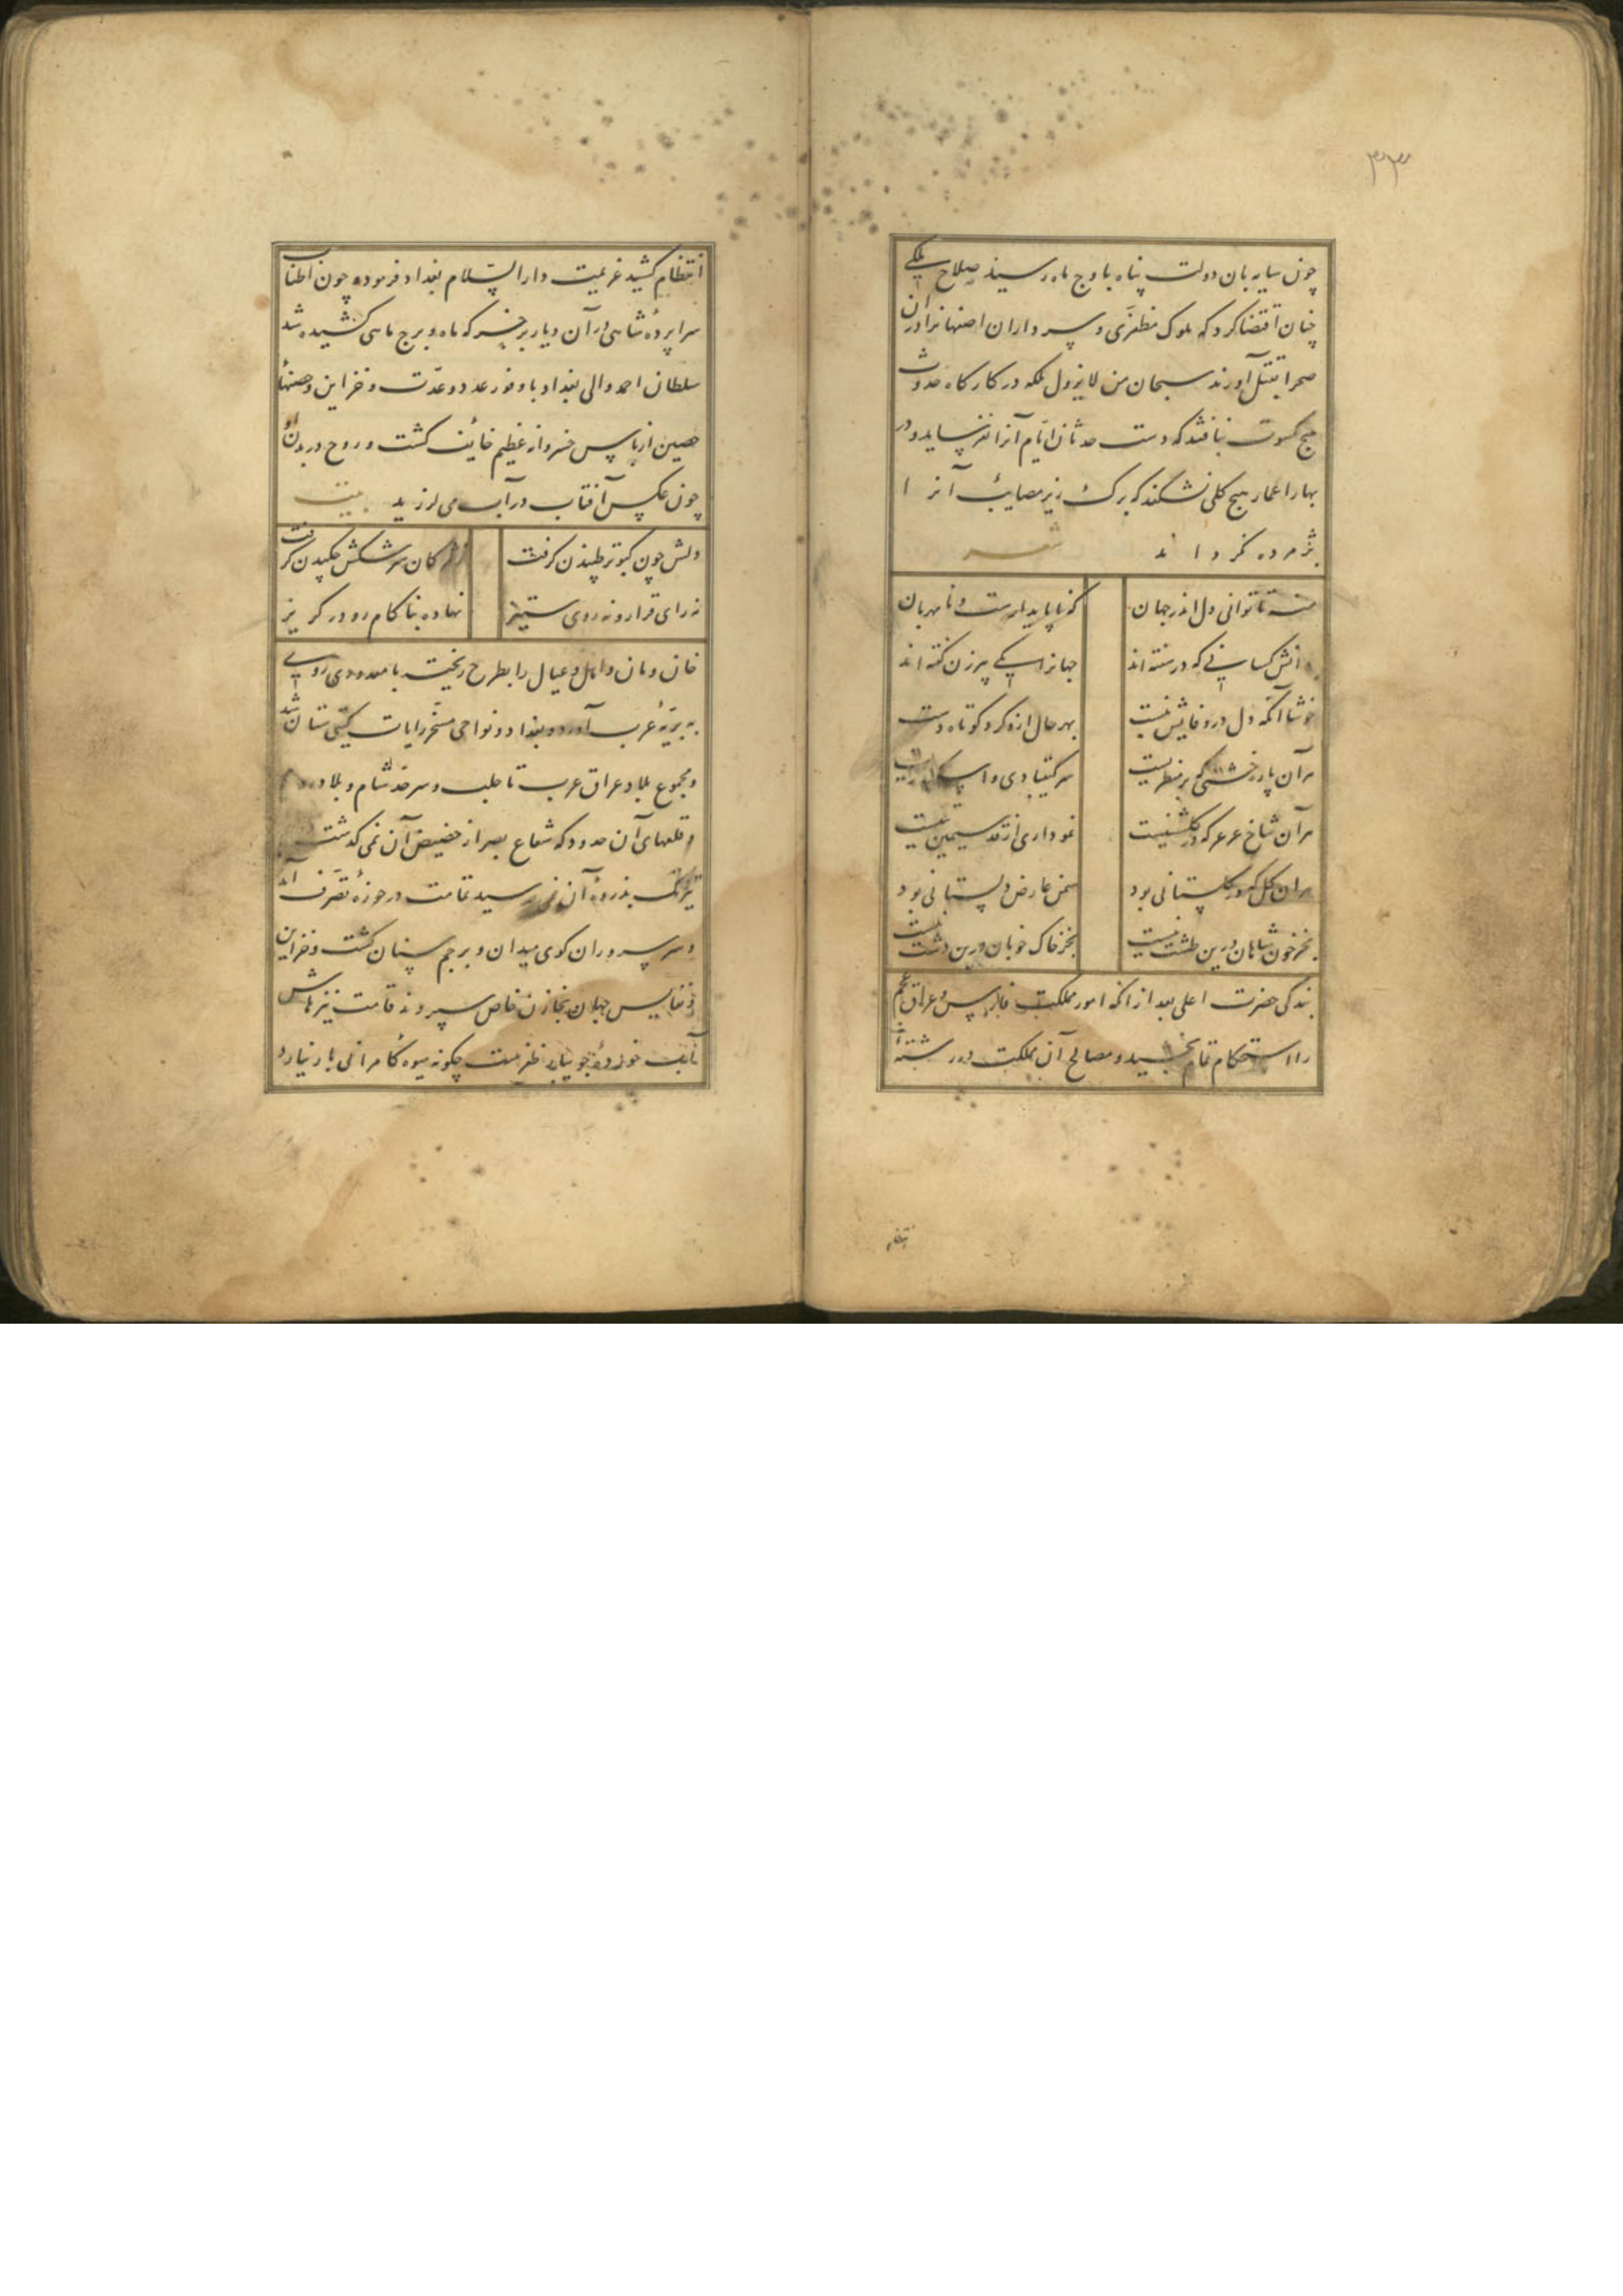 ۳۳
چون سایه بان دولت پناه باوج ماه رسید صلاح ملکی
چنان اقتضا کرد که ملوک مظفری و سرداران اصفهانرا دران
صحرا بقتل آورند سبحان من لا یزول ملکه در کارکاه حدوث
هیچ کسوت نبافتند که دست حدثان ایام آنرا نفرساید و در
بهار اعمار هیچ کلی نشکفد که برک ریز مصایب آنرا
پژمرده نکرداند
شعر
منه تا توانی دل اندر جهان
که ناپایدارست و نامهربان
دانش کسانی که در سفته اند
جهانرا یکی پیرزن کفته اند
خوشا آنکه دل در وفایش نبست
بهر حال ازو کرد کوتاه دست
هر آن پاره خشتی که بر منظریست
سر کیقبادی و اسکندریست
هر آن شاخ عرعر که در کلشنیست
نموداری از قد سیمین تنیست
هر آن کل که در کلستانی بود
سمن عارض دلستانی بود
بجز خون شاهان درین طشت نیست
بجز خاک خوبان درین دشت نیست
بندکی حضرت اعلی بعد از انکه امور مملکت فارس و عراق عجم
را استحکام تمام بخشید و مصالح آن مملکت در رشته
انتظام
انتظام کشید عزیمت دار السّلام بغداد فرموده چون اطناب
سراپردهٔ شاهی در آن دیار بر خسرکه ماه و برج ماهی کشیده شد
سلطان احمد والی بغداد با وفور عدد و عدّت و خزاین و حصنهاء
حصین از باس خسروانه عظیم خائف کشت و روح در بدن او
چون عکس آفتاب در آب می لرزید بیت
دلش چون کبوتر طپیدن کرفت
ز مژکان سرشکش چکیدن کرفت
نه رای قرار و نه روی ستیز
نهاده بناکام رو در کریز
خان و مان و اهل و عیال را بطرح ریخت با معدودی روی
به بریّهٔ عرب آورد و بغداد و نواحی مسخّر رایات کیتی ستان شد
و مجموع بلاد عراق عرب تا حلب و سرحد شام و بلاد
و قلعهای آن حدود که شعاع بصر از حضیض آن نمی کذشت
بذروهٔ آن نمی رسید تمامت در حوزهٔ تصرّف آمد
و سر سروران کوی میدان و پرچم سنان کشت و خزاین
و نفایس جهان بخازن خاص سپردند قامت نیزهاش
آب خورده جویبار ظفرست چکونه میوه کامرانی بار نیارد